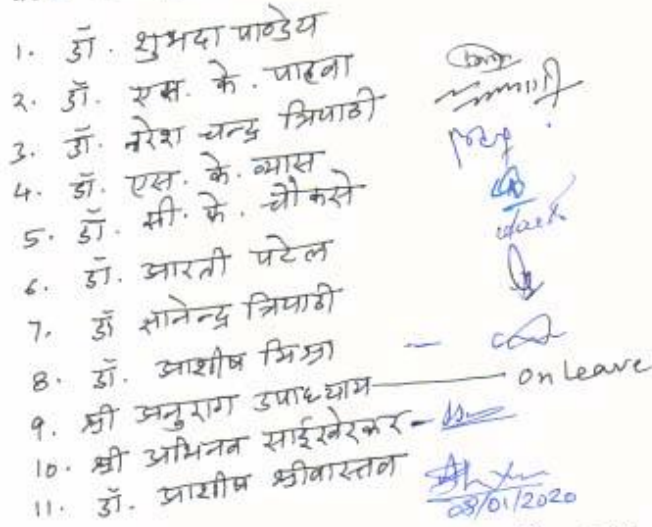 1. डॉ. शुभदा पाण्डेय
2. डॉ. एस. के. पाहवा
3. डॉ. नरेश चन्द्र त्रिपाठी
4. डॉ. एस. के. व्यास
5. डॉ. सी. के. चौकसे
6. डॉ. आरती पटेल
7. डॉ ज्ञानेन्द्र त्रिपाठी
8. डॉ. आशीष मिश्रा -
9. श्री अनुराग उपाध्याय — On Leave
10. श्री अभिनव साईखेरकर -
11. डॉ. आशीष श्रीवास्तव
08/01/2020